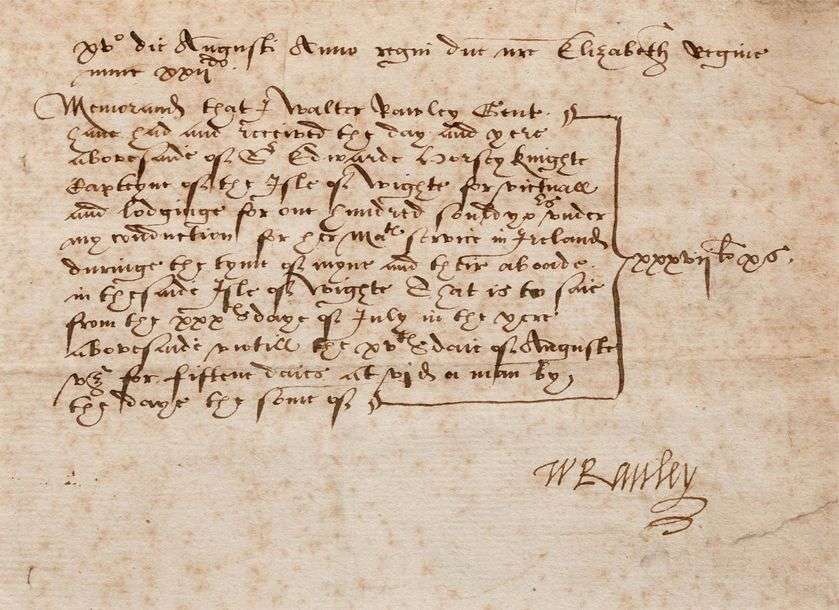 xv° die Augusti Anno regni dne nre Elizabeth Regine
nunc xxijdo.
Memorand that I Walter Rawley Gent.
have had and receeved the day and yere
abovesaide of Sr Edwarde Horsey knighte
Capteyne of the Isle of Wighte for victuall
and lodginge for one hundred souldyors under
my conduction for her Matie service in Ireland
duringe the tyme of myne and their aboade
in thesaide Isle of Wighte That is to saie
from the xxxth daye of July in the yere
abovesaide untill the xvth daie of Auguste
vz for fiftene daies at vjd a man by
the daye the some of
xxxvijli xs.
WRauley